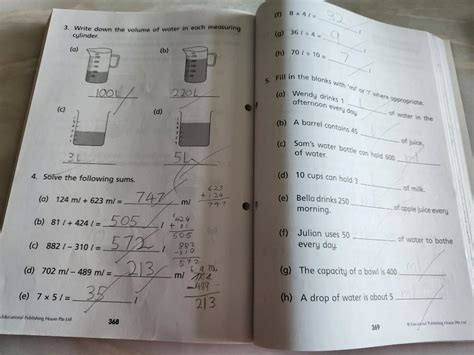 3. Write down the volume of water in each measuring
cylinder.
(a)
(b)
100l
220l
(c)
(d)
3l
5L
4. Solve the following sums.
(a) 124 ml + 623 ml = 747 ml
623
+124
747
(b) 81 l + 424 l = 505 l
424
+ 81
505
(c) 882 l – 310 l = 572 l
882
310
572
(d) 702 ml – 489 ml = 213 ml
-489
213
(e) 7 × 5 l = 35 l
Educational Publishing House Pte Ltd
368
(f) 8 × 4 l = 32 l
(g) 36 l ÷ 4 = 9 l
(h) 70 l ÷ 10 = 7 l
5. Fill in the blanks with 'ml' or 'l' where appropriate.
(a) Wendy drinks 1 l of water in the
afternoon every day.
(b) A barrel contains 45 of juice.
(c) Sam's water bottle can hold 600 ml
of water.
(d) 10 cups can hold 3 of milk.
(e) Bella drinks 250 of apple juice every
morning.
(f) Julian uses 50 of water to bathe
every day.
(g) The capacity of a bowl is 400
(h) A drop of water is about 5
369
© Educational Publishing House Pte Ltd